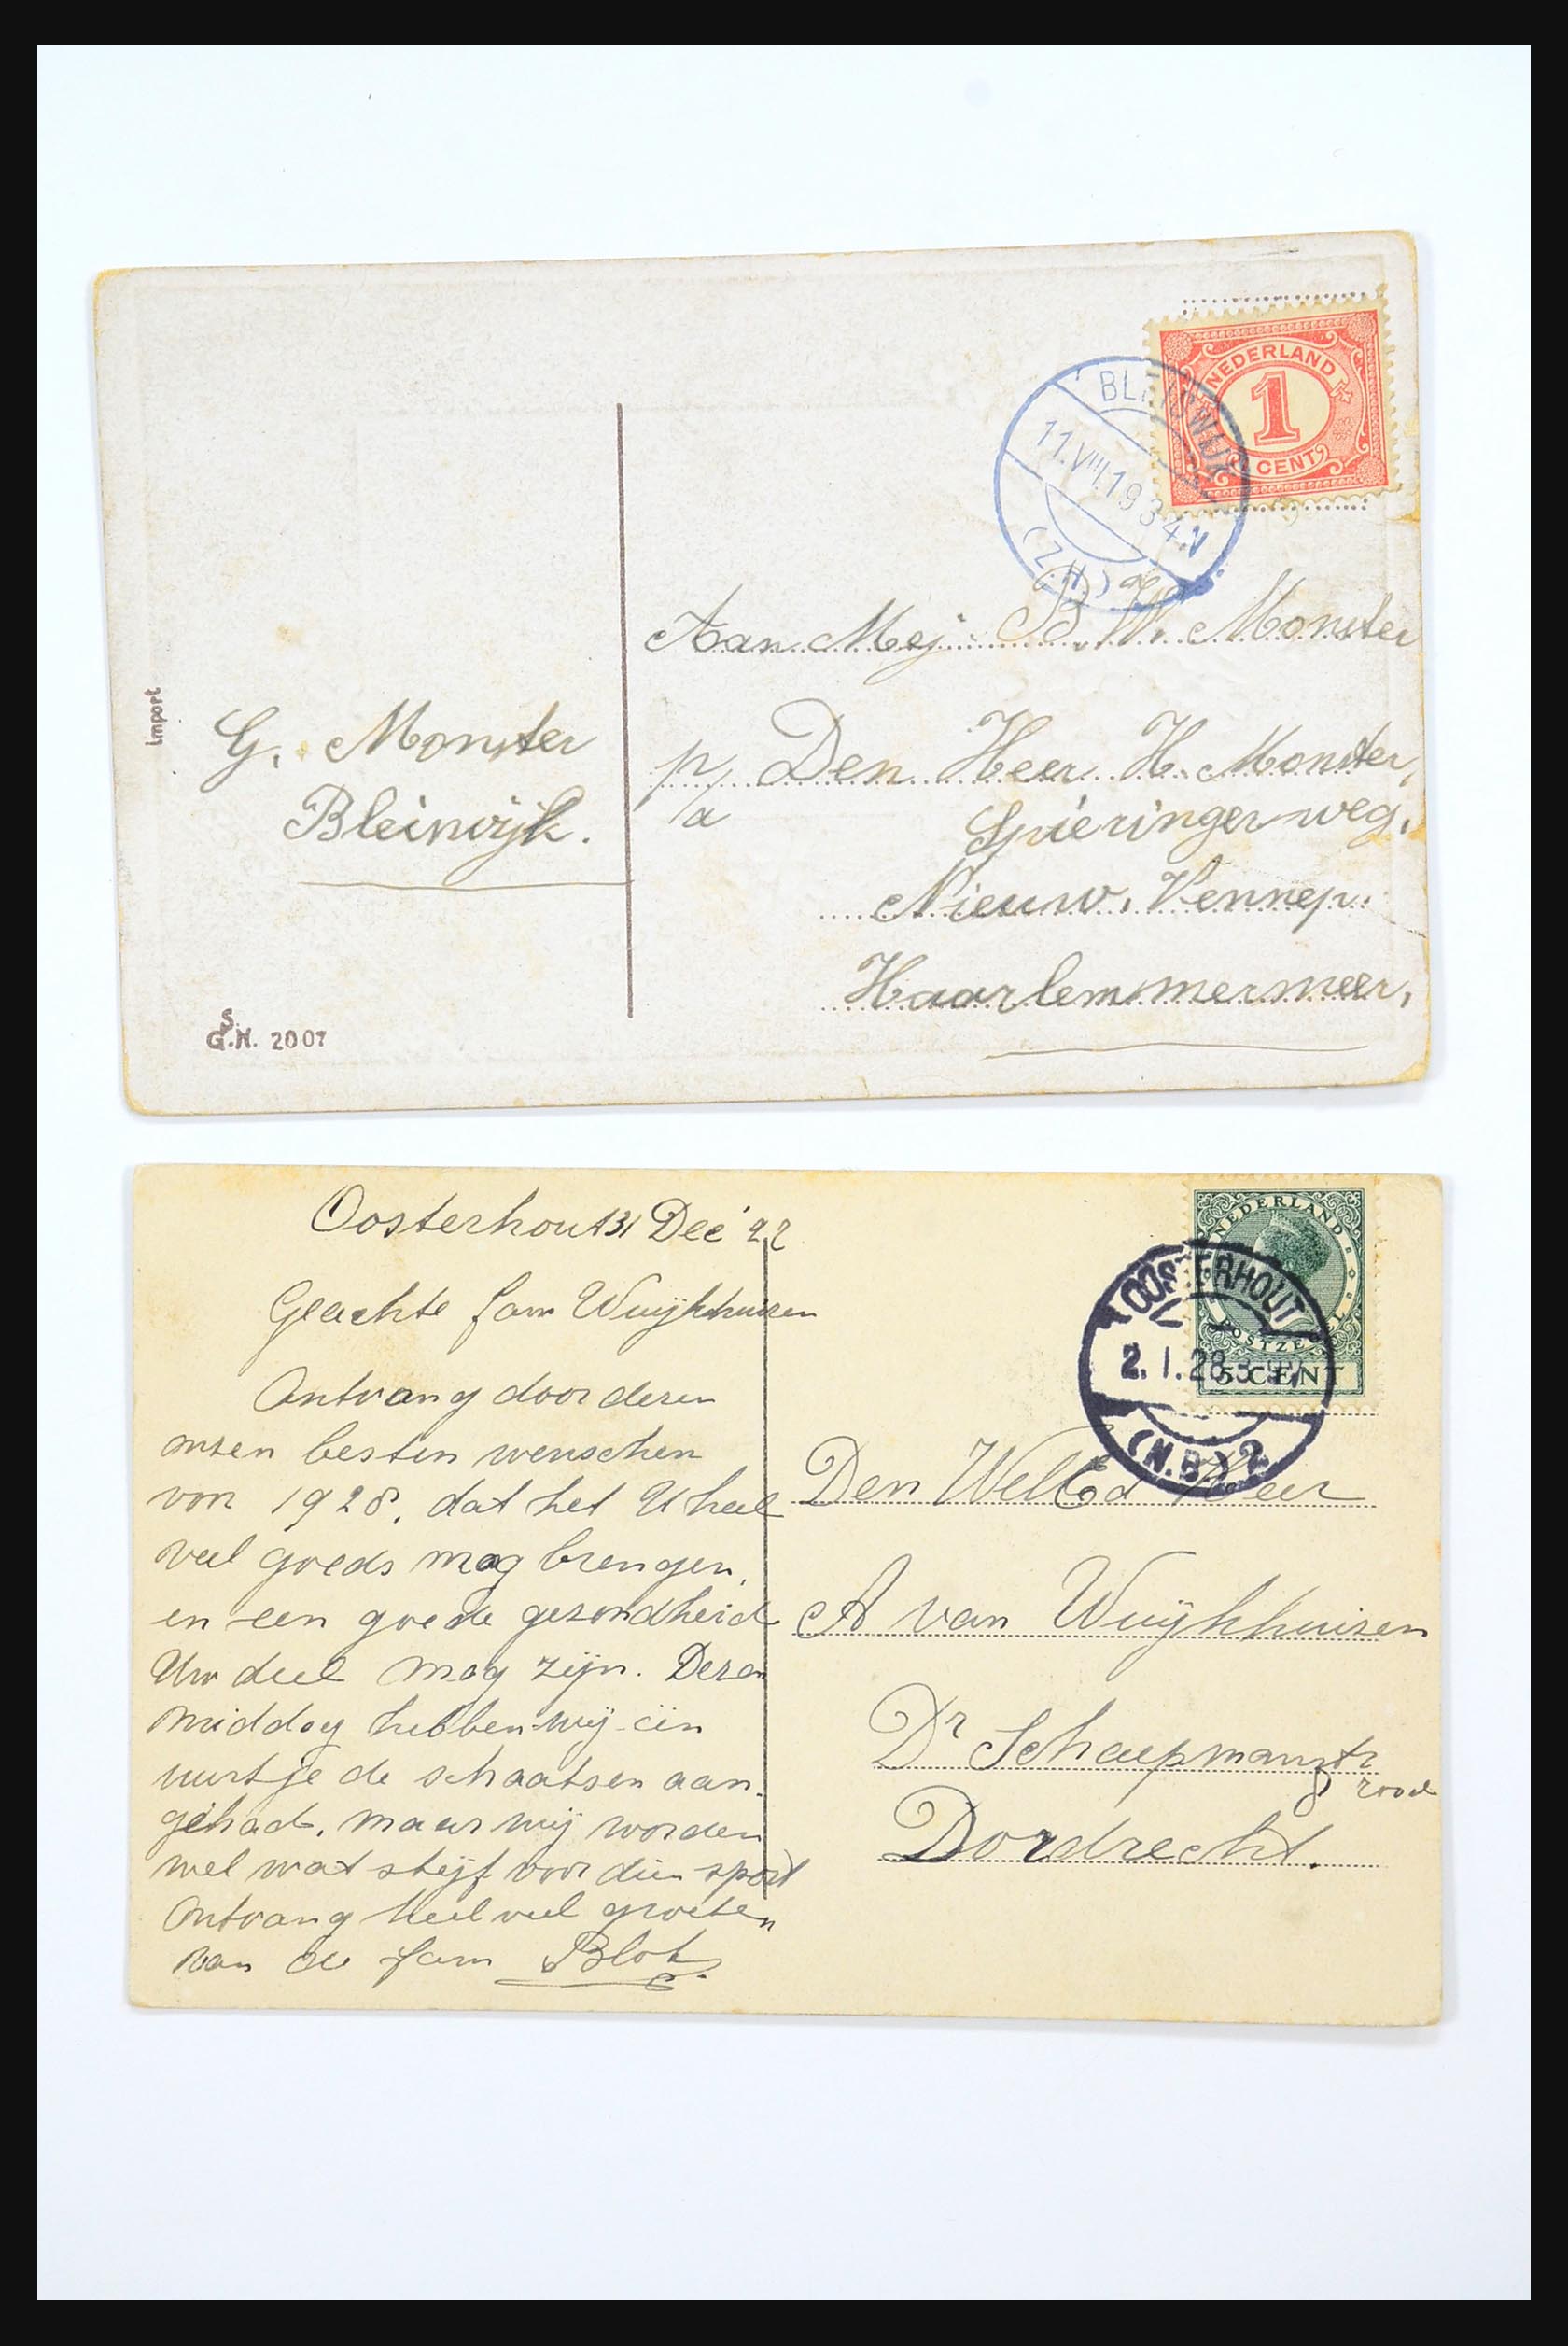 NEDERLAND
1
CENT
BLEISWIJK
11.VIII.1934.N
(Z.H)
Aan Mej. B. W. Monster
p/a Den Heer H. Monster,
Spieringerweg,
Nieuw. Vennep.
Haarlemmermeer,
G. Monster
Bleiswijk.
Import
S.
G.H. 2007
Oosterhout 31 Dec '22
Geachte fam Wuijkhuisen
Ontvang door deren
onzen besten wenschen
voor 1928, dat het U heel
veel goeds mag brengen,
en een goede gezondheid
Uw deel mag zijn. Dezen
middag hebben wij een
uurtje de schaatsen aan-
gehad, maar wij worden
wel wat stijf voor dien sport
Ontvang heel veel groeten
van de fam Blot
NEDERLAND
POSTZEGEL
5 CENT
OOSTERHOUT
2.1.28
(N.B.) 2
Den WelEd Heer
A van Wuijkhuisen
Dr Schaepmanstr
8 rood
Dordrecht.